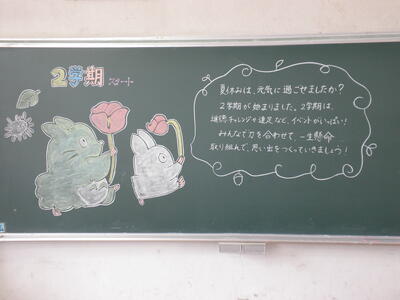 2学期 スタート
夏休みは、元気に過ごせましたか?
2学期が始まりました。2学期は、
チャレンジや遠足など、イベントがいっぱい!
みんなで力を合わせて、一生懸命
取り組んで、思い出をつくっていきましょう!